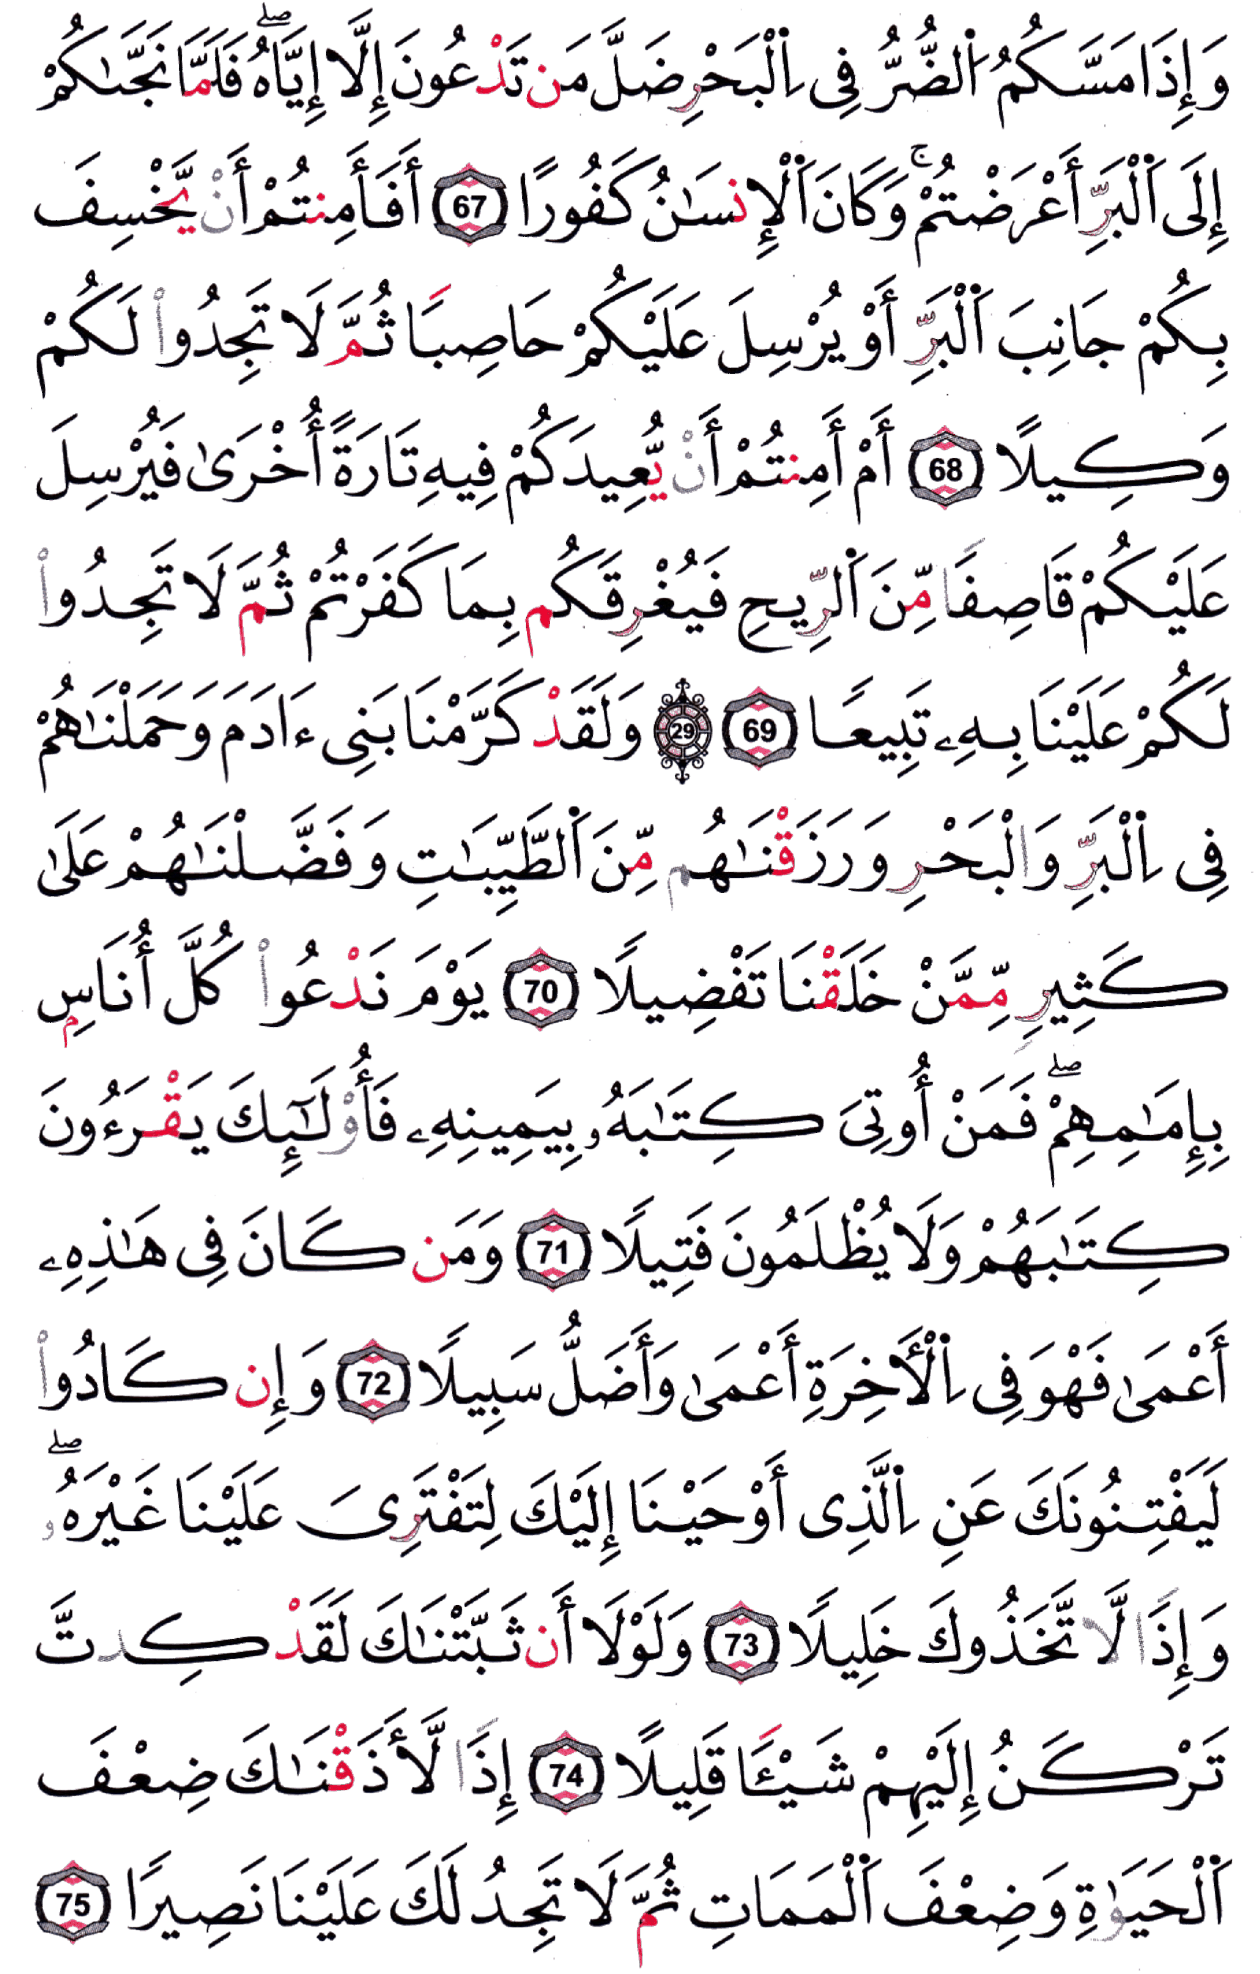 وَإِذَا مَسَّكُمُ اُ۬لضُّرُّ فِى اِ۬لْبَحْرِ ضَلَّ مَن تَدْعُونَ إِلَّا إِيَّاهُۖ فَلَمَّا نَجَّىٰكُمْ
إِلَى اَ۬لْبَرِّ أَعْرَضْتُمْۚ وَكَانَ اَ۬لْإِنسَٰنُ كَفُورًا 67 أَفَأَمِنتُمْ أَنْ يَّخْسِفَ
بِكُمْ جَانِبَ اَ۬لْبَرِّ أَوْ يُرْسِلَ عَلَيْكُمْ حَاصِبًا ثُمَّ لَا تَجِدُوا۟ لَكُمْ
وَكِيلًا 68 أَمْ أَمِنتُمْ أَنْ يُّعِيدَكُمْ فِيهِ تَارَةً أُخْرَىٰ فَيُرْسِلَ
عَلَيْكُمْ قَاصِفًا مِّنَ اَ۬لرِّيحِ فَيُغْرِقَكُم بِمَا كَفَرْتُمْ ثُمَّ لَا تَجِدُوا۟
لَكُمْ عَلَيْنَا بِهِۦ تَبِيعًا 69 29 وَلَقَدْ كَرَّمْنَا بَنِى ءَادَمَ وَحَمَلْنَٰهُمْ
فِى اِ۬لْبَرِّ وَالْبَحْرِ وَرَزَقْنَٰهُم مِّنَ اَ۬لطَّيِّبَٰتِ وَفَضَّلْنَٰهُمْ عَلَىٰ
كَثِيرٍ مِّمَّنْ خَلَقْنَا تَفْضِيلًا 70 يَوْمَ نَدْعُوا۟ كُلَّ أُنَاسِۭ
بِإِمَٰمِهِمْۖ فَمَنْ أُوتِىَ كِتَٰبَهُۥ بِيَمِينِهِۦ فَأُو۟لَٰٓئِكَ يَقْرَءُونَ
كِتَٰبَهُمْ وَلَا يُظْلَمُونَ فَتِيلًا 71 وَمَن كَانَ فِى هَٰذِهِۦ
أَعْمَىٰ فَهْوَ فِى اِ۬لْأَخِرَةِ أَعْمَىٰ وَأَضَلُّ سَبِيلًا 72 وَإِن كَادُوا۟
لَيَفْتِنُونَكَ عَنِ اِ۬لَّذِى أَوْحَيْنَا إِلَيْكَ لِتَفْتَرِىَ عَلَيْنَا غَيْرَهُۥۖ
وَإِذًا لَّا تَّخَذُوكَ خَلِيلًا 73 وَلَوْلَا أَن ثَبَّتْنَٰكَ لَقَدْ كِدتَّ
تَرْكَنُ إِلَيْهِمْ شَيْـًٔا قَلِيلًا 74 إِذًا لَّأَذَقْنَٰكَ ضِعْفَ
اَ۬لْحَيَوٰةِ وَضِعْفَ اَ۬لْمَمَاتِ ثُمَّ لَا تَجِدُ لَكَ عَلَيْنَا نَصِيرًا 75